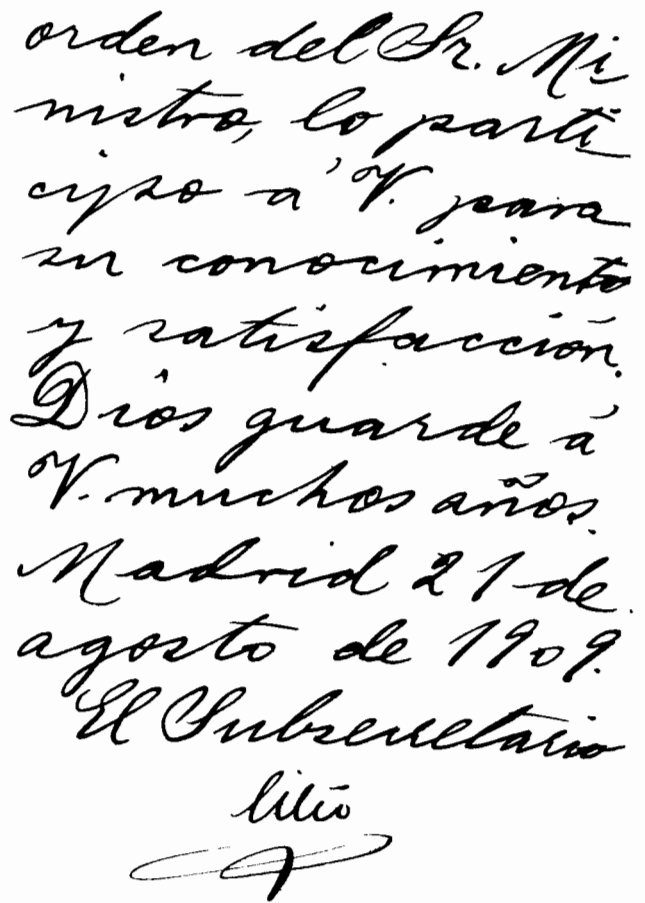 orden del Sr. Mi
nistro, lo parti
cipo á V. para
su conocimiento
y satisfacción.
Dios guarde á
V. muchos años.
Madrid 21 de
agosto de 1909.
El Subsecretario